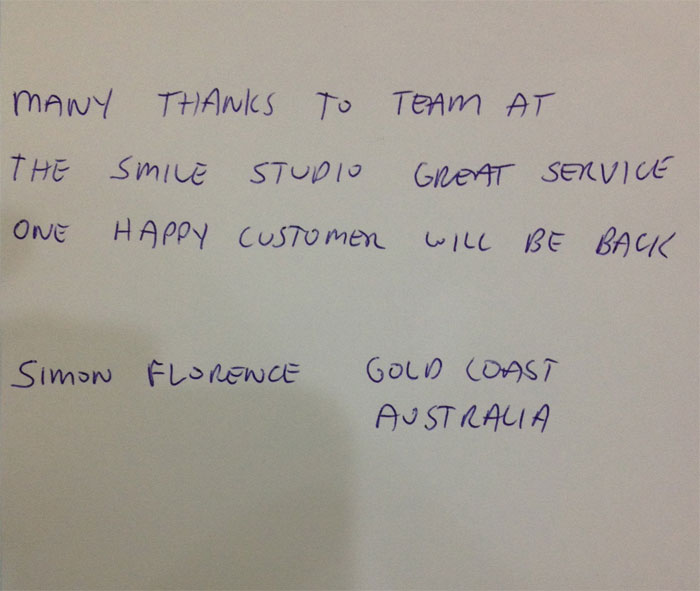 MANY THANKS TO TEAM AT
THE SMILE STUDIO GREAT SERVICE
ONE HAPPY CUSTOMER WILL BE BACK
SIMON FLORENCE GOLD COAST
AUSTRALIA